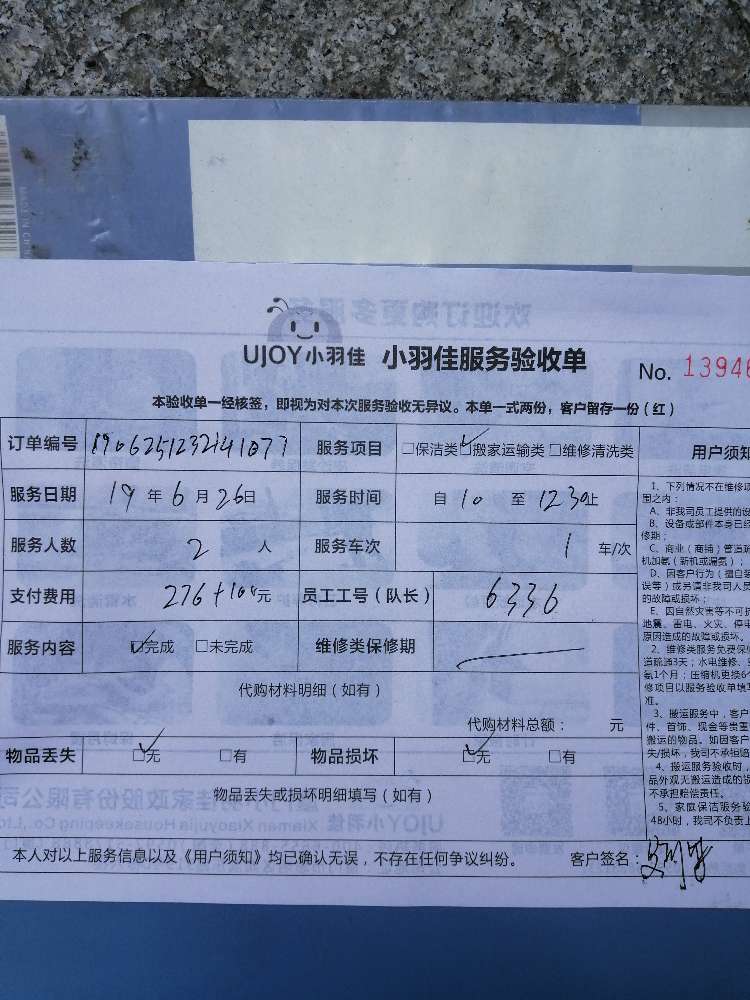 UJOY小羽佳 小羽佳服务验收单 No. 13946
本验收单一经核签，即视为对本次服务验收无异议。本单一式两份，客户留存一份（红）
订单编号 服务项目 □保洁类 □搬家运输类 □维修清洗类
服务日期 19 年 6 月 26日 服务时间 自 10 至 1230止
服务人数 2 人 服务车次 1 车/次
支付费用 276+100元 员工工号（队长） 6336
服务内容 □完成 □未完成 维修类保修期
代购材料明细（如有）
代购材料总额： 元
物品丢失 □无 □有 物品损坏 □无 □有
物品丢失或损坏明细填写（如有）
本人对以上服务信息以及《用户须知》均已确认无误，不存在任何争议纠纷。 客户签名：
用户须知
1、下列情况不在维修项
围之内：
A、非我司员工提供的设
B、设备或部件本身已经
修期；
C、商业（商铺）管道疏
机加氨（新机或漏氨）；
D、因客户行为（擅自装
误等）或另请非我司人员
的故障或损坏；
E、因自然灾害等不可抗
地震、雷电、火灾、停电
原因造成的故障或损坏。
2、维修类服务免费保修
道疏通3天；水电维修、
氨1个月；压缩机更换6个
修项目以服务验收单填写
准。
3、搬运服务中，客户
件、首饰、现金等贵重
搬运的物品。如因客户
失/损坏，我司不承担赔
4、搬运服务验收时，
品外观无搬运造成的损
不承担赔偿责任。
5、家庭保洁服务验
48小时，我司不负责上